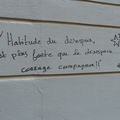 Habitude du désespoir,
est plus forte que le désespoir
courage compagnon!!